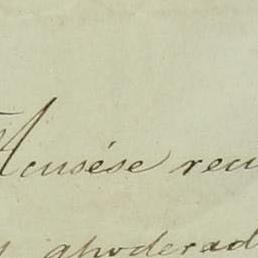 Acusése recu
apoderad